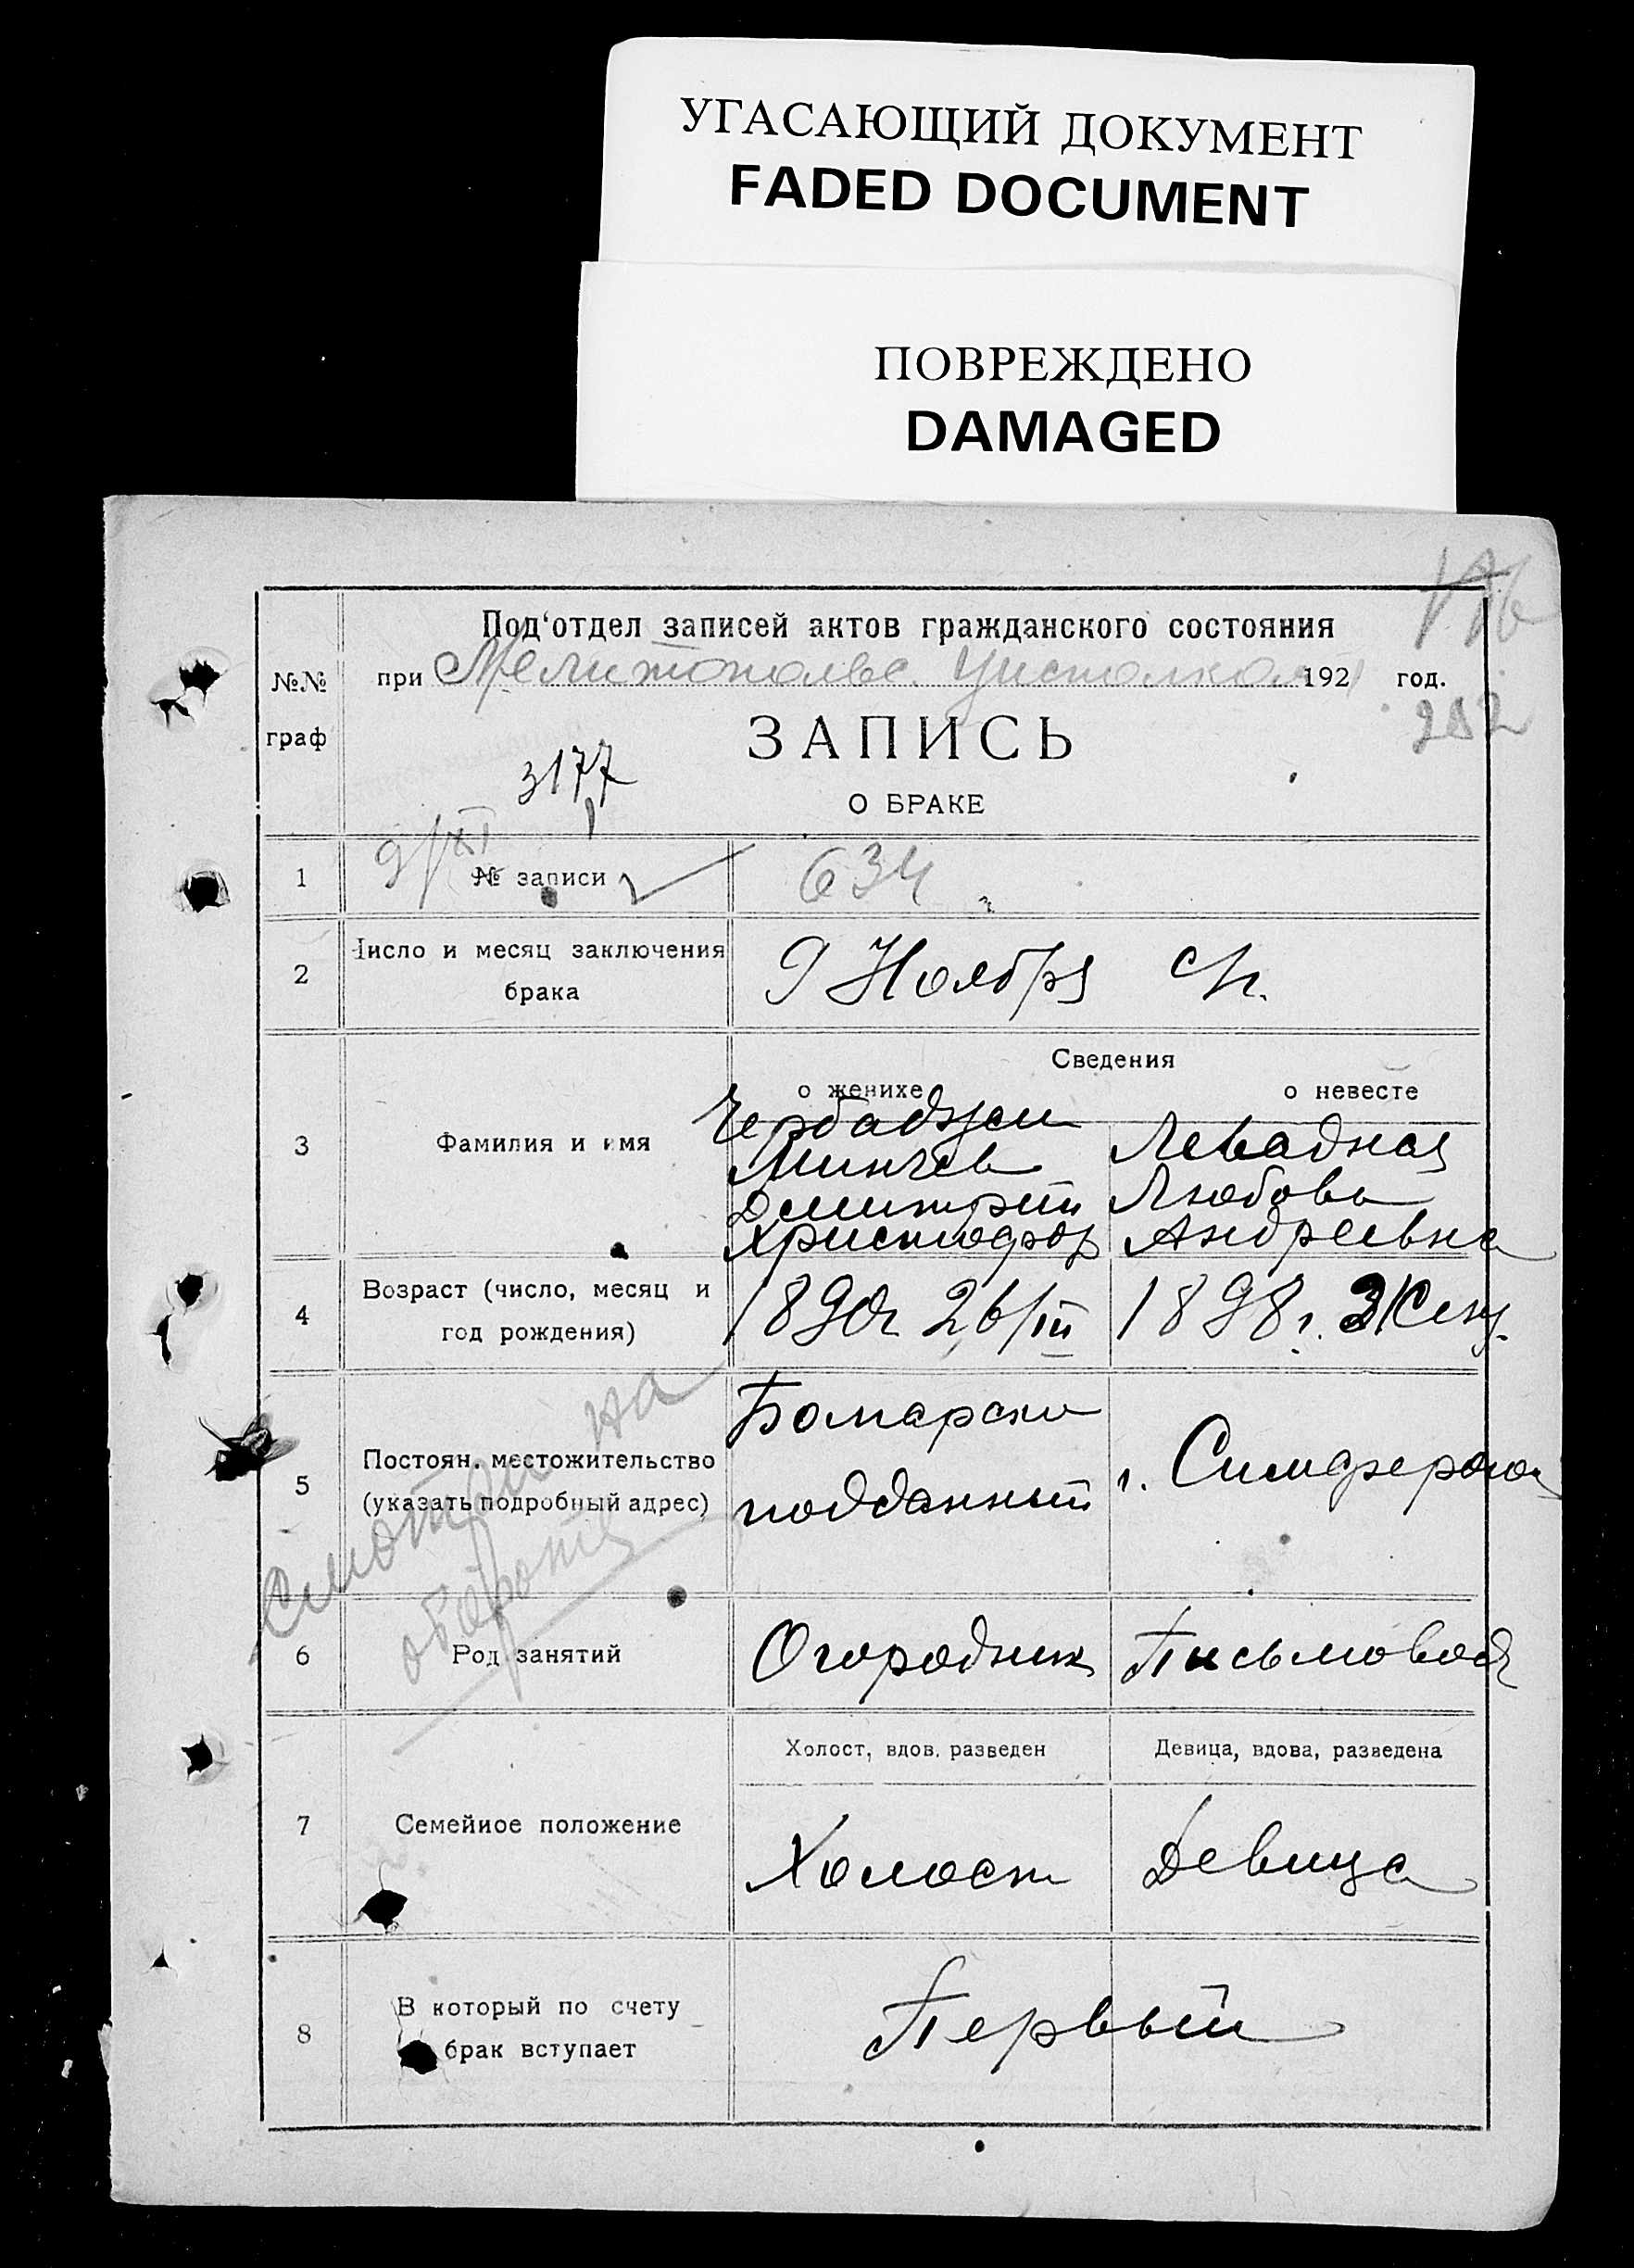 УГАСАЮЩИЙ ДОКУМЕНТ
FADED DOCUMENT
ПОВРЕЖДЕНО
DAMAGED
Под'отдел записей актов гражданского состояния
№№ граф
при Мелитопольс. 192 год.
252
ЗАПИСЬ
3177
О БРАКЕ
9/XI
1 № записи 634
2 Число и месяц заключения брака
9 Ноября
Сведения
о женихе о невесте
3 Фамилия и имя
Чербаджи
Минчев
Дмитрий
Христофор
Левадная
Любовь
Андреевна
4 Возраст (число, месяц и год рождения)
1890г 26/III
1898 г.
5 Постоян. местожительство (указать подробный адрес)
Болгарски
подданный
г. Симферопол
смотри на
обороте
6 Род занятий
Огородник
Письмовод
Холост, вдов, разведен
Девица, вдова, разведена
7 Семейное положение
Холост
Девица
8 В который по счету брак вступает
Первый